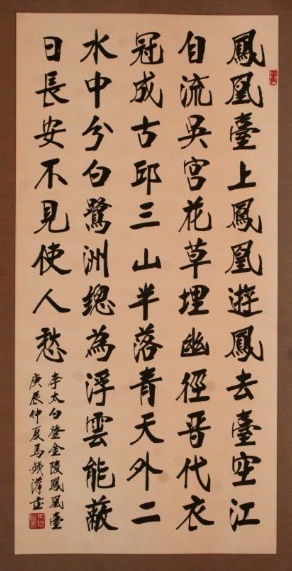 鳳凰臺上鳳凰遊鳳去臺空江
自流吳宮花草埋幽徑晉代衣
冠成古邱三山半落青天外二
水中分白鷺洲總為浮雲能蔽
日長安不見使人愁
李太白登金陵鳳凰臺
庚辰仲夏馬書